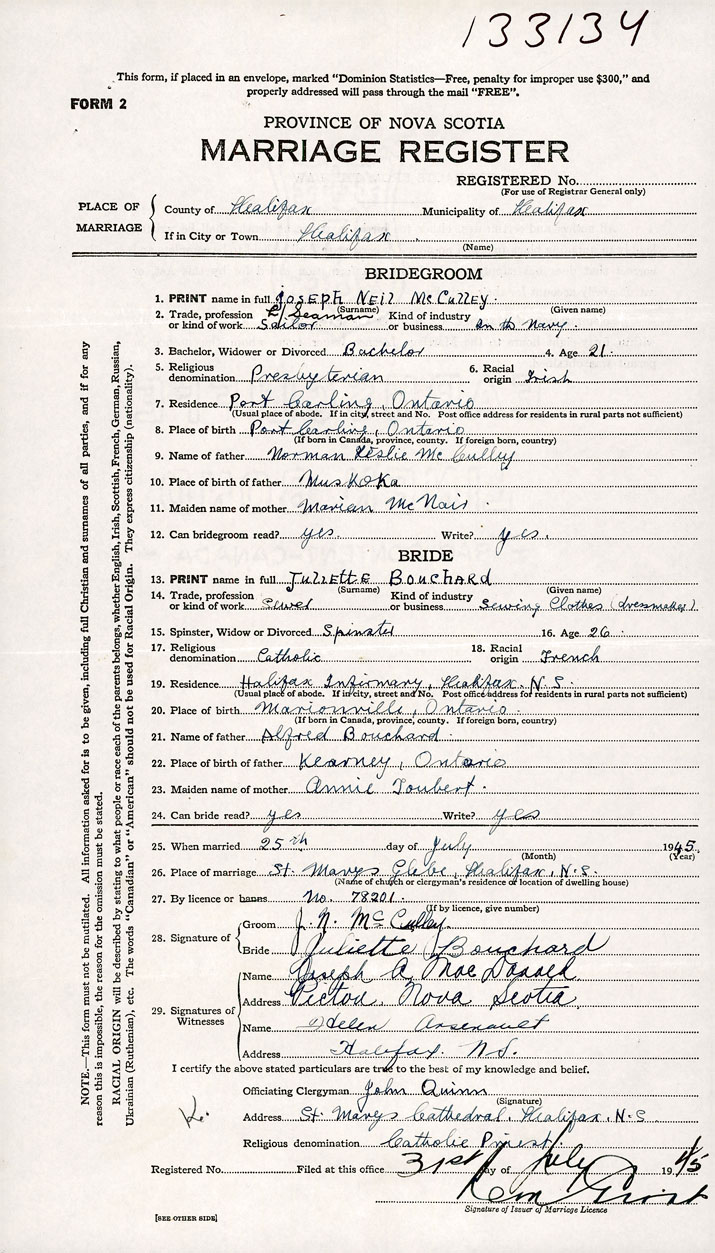 133134
This form, if placed in an envelope, marked "Dominion Statistics—Free, penalty for improper use $300," and
properly addressed will pass through the mail "FREE".
FORM 2
PROVINCE OF NOVA SCOTIA
MARRIAGE REGISTER
REGISTERED No.
(For use of Registrar General only)
PLACE OF MARRIAGE
County of Halifax Municipality of Halifax
If in City or Town Halifax
(Name)
BRIDEGROOM
1. PRINT name in full JOSEPH NEIL McCULLEY
(Surname) (Given name)
2. Trade, profession or kind of work Seaman Sailor Kind of industry or business In the Navy.
3. Bachelor, Widower or Divorced Bachelor 4. Age 21.
5. Religious denomination Presbyterian 6. Racial origin Irish
7. Residence Port Carling, Ontario
(Usual place of abode. If in city, street and No. Post office address for residents in rural parts not sufficient)
8. Place of birth Port Carling, Ontario
(If born in Canada, province, county. If foreign born, country)
9. Name of father Norman Leslie McCulley
10. Place of birth of father Muskoka
11. Maiden name of mother Marian McNair
12. Can bridegroom read? yes. Write? yes.
BRIDE
13. PRINT name in full JULIETTE BOUCHARD
(Surname) (Given name)
14. Trade, profession or kind of work Sewer Kind of industry or business Sewing Clothes (dressmaker)
15. Spinster, Widow or Divorced Spinster 16. Age 26.
17. Religious denomination Catholic 18. Racial origin French
19. Residence Halifax Infirmary, Halifax, N.S.
(Usual place of abode. If in city, street and No. Post office address for residents in rural parts not sufficient)
20. Place of birth Marionville, Ontario.
(If born in Canada, province, county. If foreign born, country)
21. Name of father Alfred Bouchard.
22. Place of birth of father Kearney, Ontario
23. Maiden name of mother Annie Joubert.
24. Can bride read? yes Write? yes
25. When married 25th day of July 1945.
(Month) (Year)
26. Place of marriage St. Marys Glebe, Halifax, N.S.
(Name of church or clergyman's residence or location of dwelling house)
27. By licence or banns No. 78201.
(If by licence, give number)
28. Signature of
Groom J. N. McCulley.
Bride Juliette Bouchard
29. Signatures of Witnesses
Name Joseph A MacDonald
Address Pictou, Nova Scotia
Name Helen Arsenault
Address Halifax. N.S.
I certify the above stated particulars are true to the best of my knowledge and belief.
Officiating Clergyman John Quinn
(Signature)
Address St. Marys Cathedral. Halifax. N.S
Religious denomination Catholic Priest.
Registered No. Filed at this office 31st day of July 1945
Signature of Issuer of Marriage Licence
[SEE OTHER SIDE]
NOTE.—This form must not be mutilated. All information asked for is to be given, including full Christian and surnames of all parties, and if for any
reason this is impossible, the reason for the omission must be stated.
RACIAL ORIGIN will be described by stating to what people or race each of the parents belongs, whether English, Irish, Scottish, French, German, Russian,
Ukrainian (Ruthenian), etc. The words "Canadian" or "American" should not be used for Racial Origin. They express citizenship (nationality).